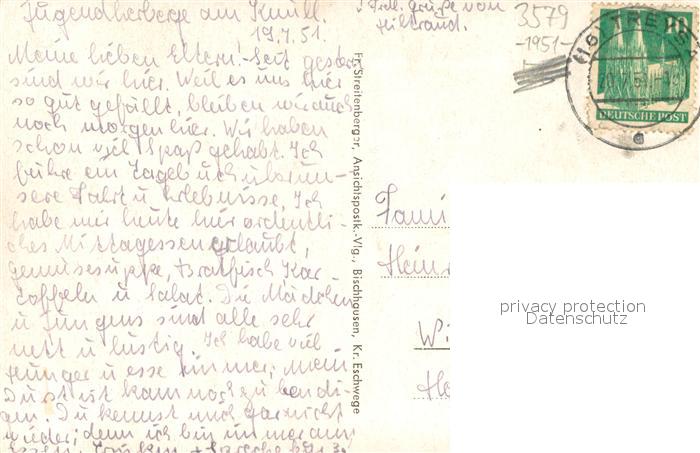 Jugendherberge am Knüll.
19.7.51.
Meine lieben Eltern! Seit gestern
sind wir hier. Weil es uns hier
so gut gefällt, bleiben wir auch
noch morgen hier. Wir haben
schon viel Spaß gehabt. Ich
führe ein Tagebuch über un-
sere Fahrt u. Erlebnisse. Ich
habe mir heute hier ordentli-
ches Mittagessen erlaubt,
Gemüsesuppe, Bratfisch Kar-
toffeln u. Salat. Die Mädchen
u. Jungens sind alle sehr
nett u. lustig. Ich habe viel
Hunger u. esse immer; mein
Durst ist kaum noch zu bändi-
gen. Du kennst mich gar nicht
wieder; denn ich bin immer am
Grüße von
3579
-1951-
(16) TREYSA
10
DEUTSCHE POST
a
Fr. Streitenberger, Ansichtspostk.-Vlg., Bischhausen, Kr. Eschwege
Fami
Hein
Wi
privacy protection
Datenschutz